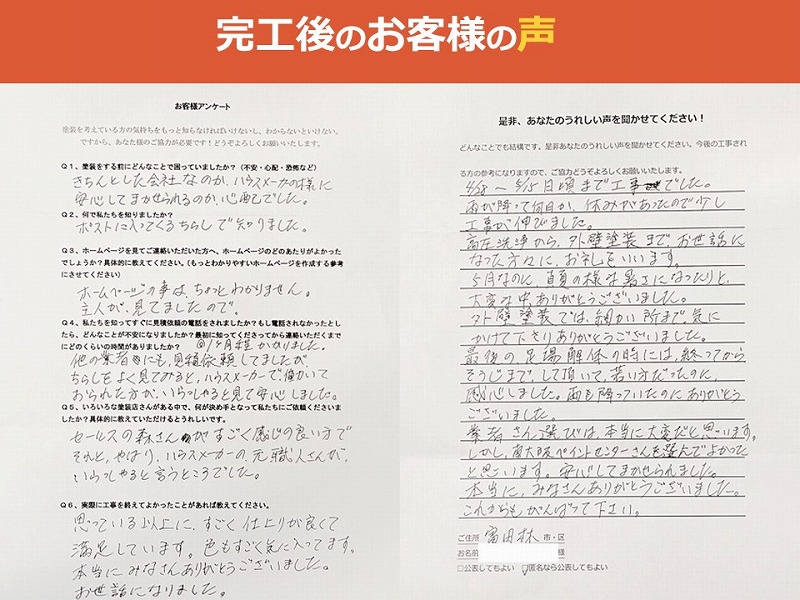 完工後のお客様の声
お客様アンケート
塗装を考えている方の気持ちをもっと知らなければいけないし、わからないといけない。
ですから、あなた様のご協力が必要です！どうぞよろしくお願いいたします。
Q１、塗装をする前にどんなことで困っていましたか？（不安・心配・恐怖など）
きちんとした会社なのか、ハウスメーカーの様に
安心してまかせられるのか、心配でした。
Q２、何で私たちを知りましたか？
ポストに入ってくるちらしで知りました。
Q３、ホームページを見てご連絡いただいた方へ、ホームページのどのあたりがよかった
でしょうか？具体的に教えてください。（もっとわかりやすいホームページを作成する参考
にさせてください）
ホームページの事は、ちょっとわかりません。
主人が、見てましたので。
Q４、私たちを知ってすぐに見積依頼の電話をされましたか？もし電話されなかったとし
たら、どんなことが不安になりましたか？最初に知ってくださってから連絡いただくまで
にどのくらいの時間がありましたか？
1ヶ月程かかりました。
他の業者にも、見積依頼してましたが
ちらしをよく見てみると、ハウスメーカーで働いて
おられた方が、いらっしゃると見て安心しました。
Q５、いろいろな塗装店さんがある中で、何が決め手となって私たちにご依頼くださいま
したか？具体的に教えていただけるとうれしいです。
セールスの森さんがすごく感じの良い方で
それと、やはり、ハウスメーカーの元職人さんが、
いらっしゃると言うところでした。
Q６、実際に工事を終えてよかったことがあれば教えてください。
思っている以上に、すごく仕上りが良くて
満足しています。色もすごく気に入ってます。
本当にみなさんありがとうございました。
お世話になりました。
是非、あなたのうれしい声を聞かせてください！
どんなことでも結構です。是非あなたのうれしい声を聞かせてください。今後の工事され
る方の参考になりますので、ご協力どうぞよろしくお願いいたします。
〜5/15日頃まで工事でした。
雨が降って何日か、休みがあったので少し
工事が伸びました。
高圧洗浄から、外壁塗装まで、お世話に
なった方々に、お礼をいいます。
5月なのに、真夏の様な暑さになったりと、
大変な中ありがとうございました。
外壁塗装では、細かい所まで、気に
かけて下さりありがとうございました。
最後の足場解体の時には、終ってから
そうじまで、して頂いて、若い方だったのに、
感心しました。雨も降っていたのにありがとう
ございました。
業者さん選びは、本当に大変だと思います。
しかし、南大阪ペイントセンターさんを選んでよかった
と思います。安心してまかせられました。
本当に、みなさんありがとうございました。
これからもがんばって下さい。
ご住所 富田林 市・区
お名前 様
□公表してもよい ☑匿名なら公表してもよい